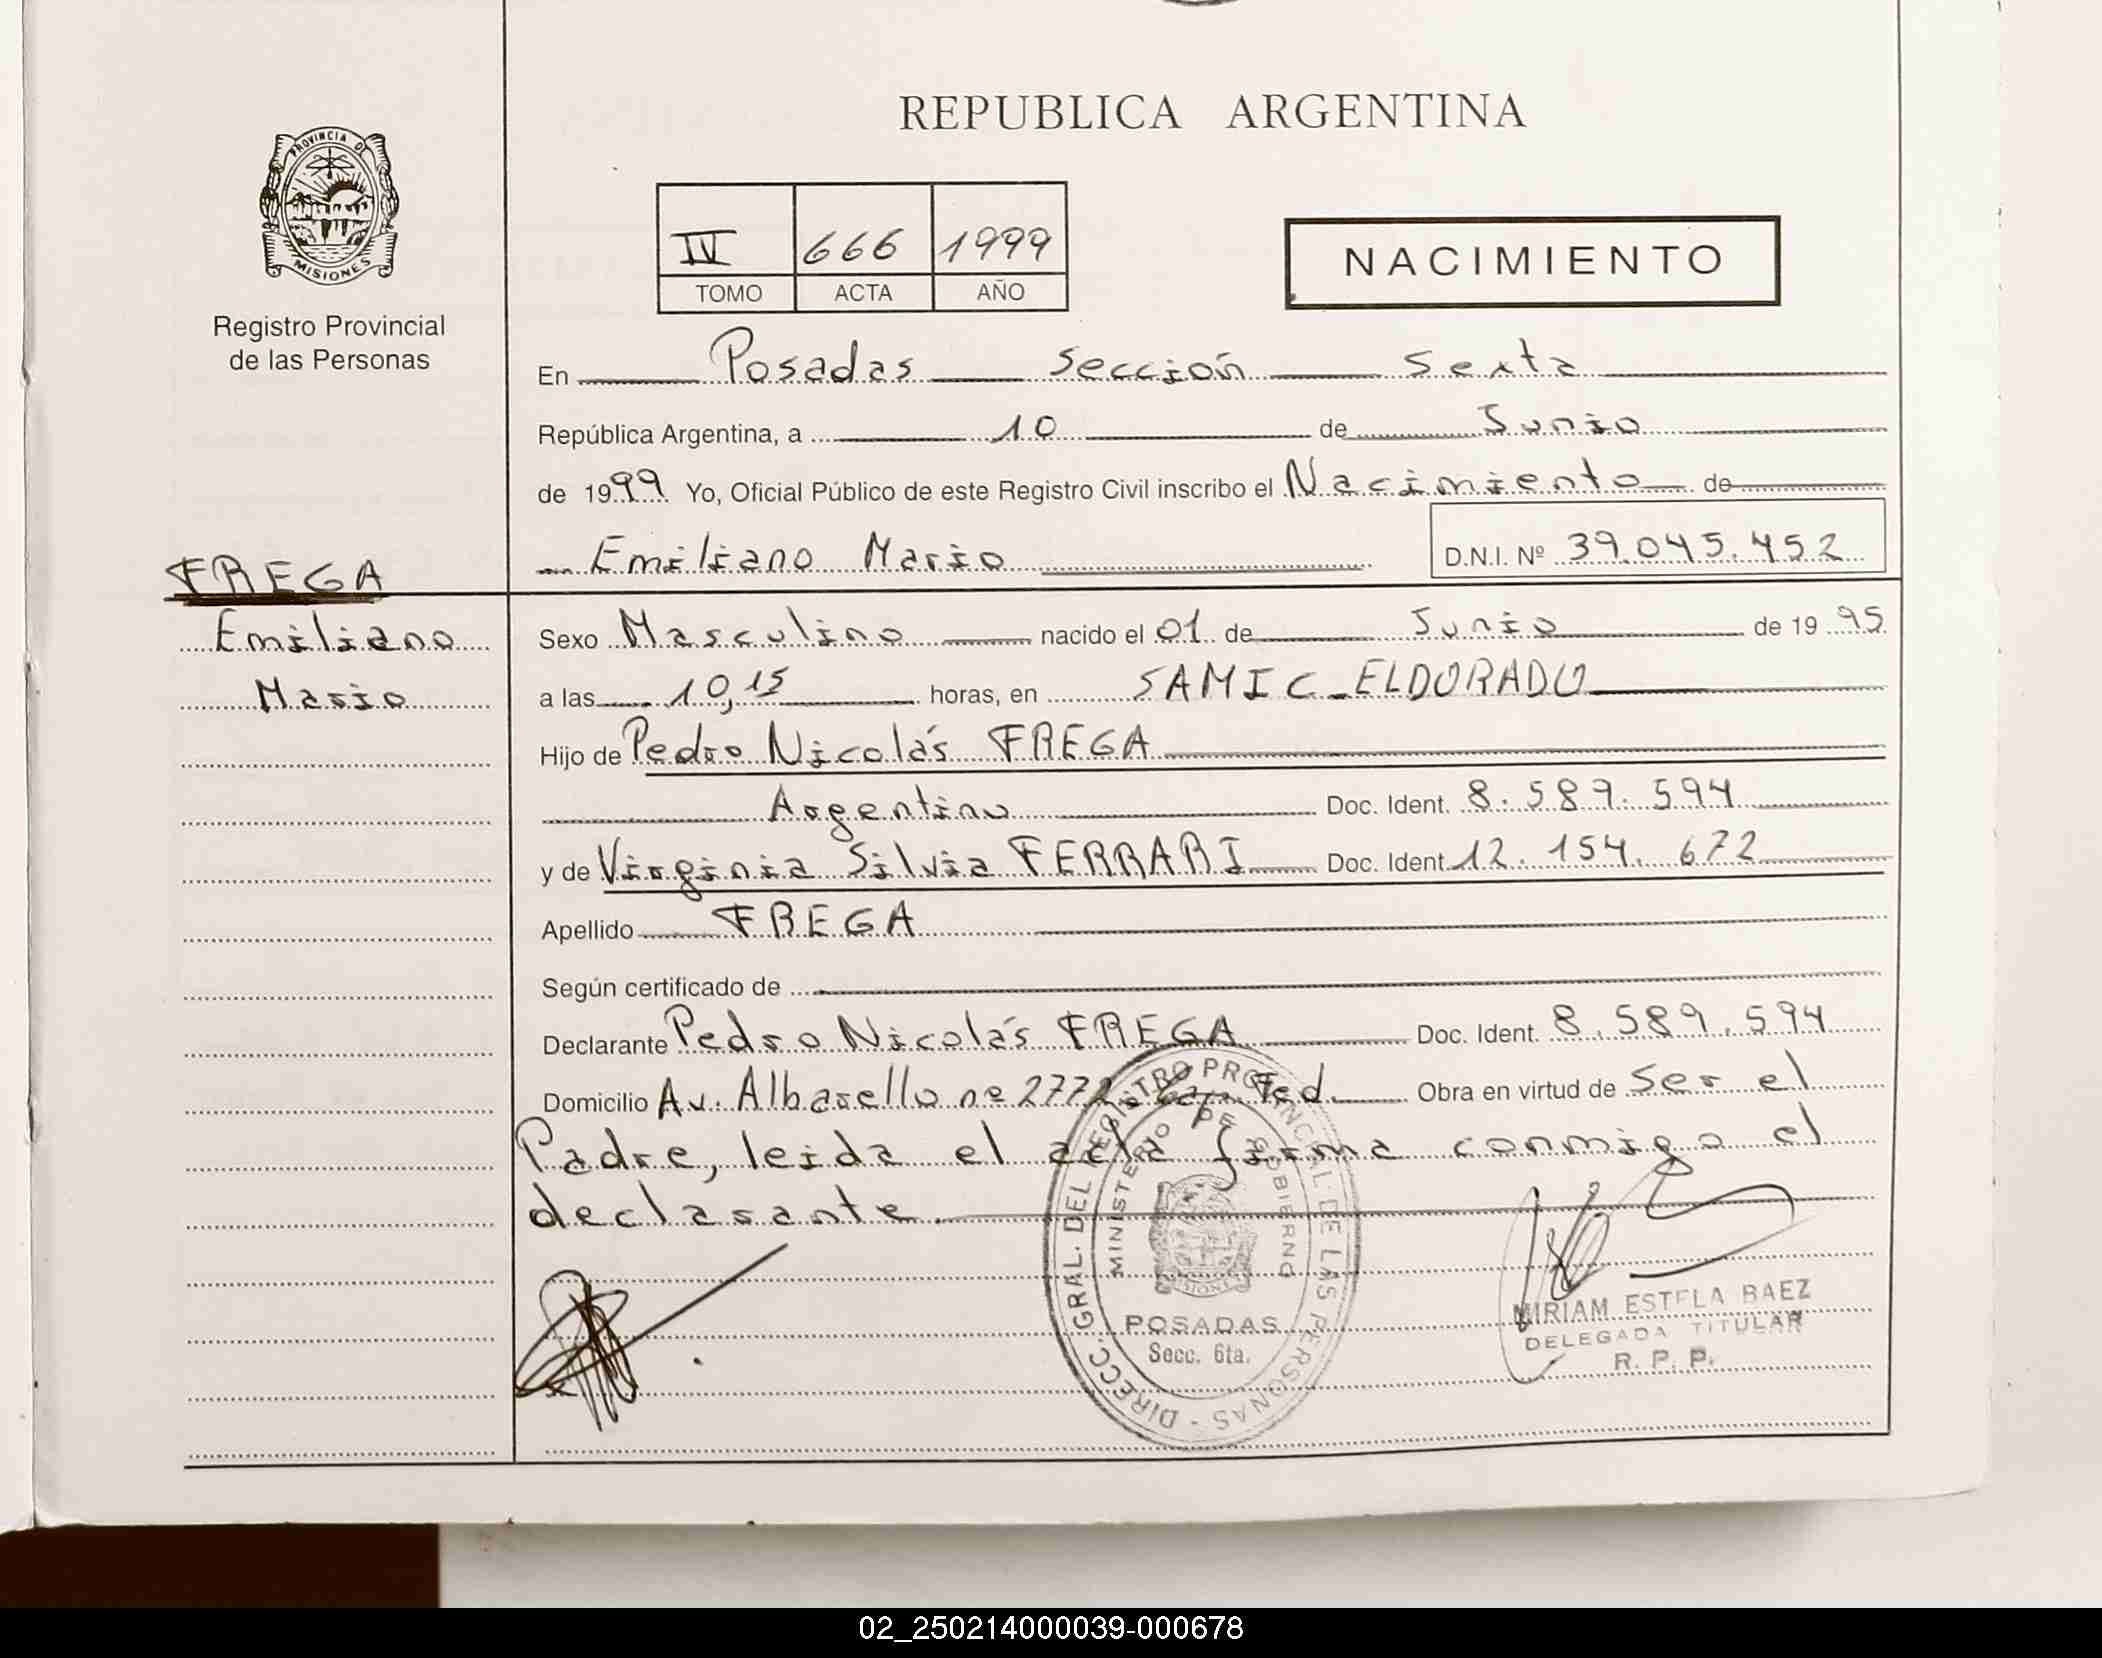 REPUBLICA ARGENTINA
PROVINCIA DE
MISIONES
Registro Provincial
de las Personas
IV 666 1999
TOMO ACTA AÑO
NACIMIENTO
En Posadas Sección Sexta
República Argentina, a 10 de Junio
de 1999 Yo, Oficial Público de este Registro Civil inscribo el Nacimiento de
Emiliano Mario D.N.I. Nº 39.045.452
FREGA
Emiliano
Mario
Sexo Masculino nacido el 01 de Junio de 1995
a las 10,15 horas, en SAMIC ELDORADO
Hijo de Pedro Nicolás FREGA
Argentino Doc. Ident. 8.589.594
y de Virginia Silvia FERRARI Doc. Ident. 12.154.672
Apellido FREGA
Según certificado de
Declarante Pedro Nicolás FREGA Doc. Ident. 8.589.594
Domicilio Av. Albarello nº 2772 Fed. Obra en virtud de Ser el
Padre, leida el acta firma conmigo el
declarante.
DIRECC. GRAL. DEL REGISTRO PROVINCIAL DE LAS PERSONAS -
MINISTERIO DE GOBIERNO
POSADAS
Secc. 6ta.
MIRIAM ESTELA BAEZ
DELEGADA TITULAR
R. P. P.
02_250214000039-000678